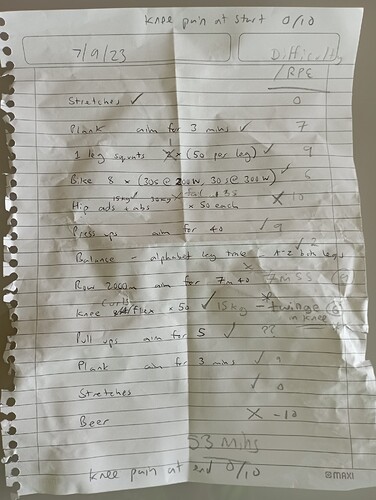 knee pain at start 0/10
7/9/23 Difficulty
/RPE
Stretches ✓ 0
Plank aim for 3 mins ✓ 7
1 leg squats 1 x (50 per leg) ✓ 9
Bike 8 x (30s @ 200W, 30s @ 300W) ✓ 6
15kg
Hip ads + abs x 50 each X 10
Press ups aim for 40 ✓ 9
Balance - alphabet leg trace - A-Z both legs ✓ 2
Row 2000m aim for 7m40 X 7m55
Curls
knee flex x 50 ✓ 15kg - twinge 6
in knee
Pull ups aim for 5 ✓ ??
Plank aim for 3 mins ✓ 9
Stretches ✓ 0
Beer X -10
53 mins
knee pain at end 0/10
MAXI